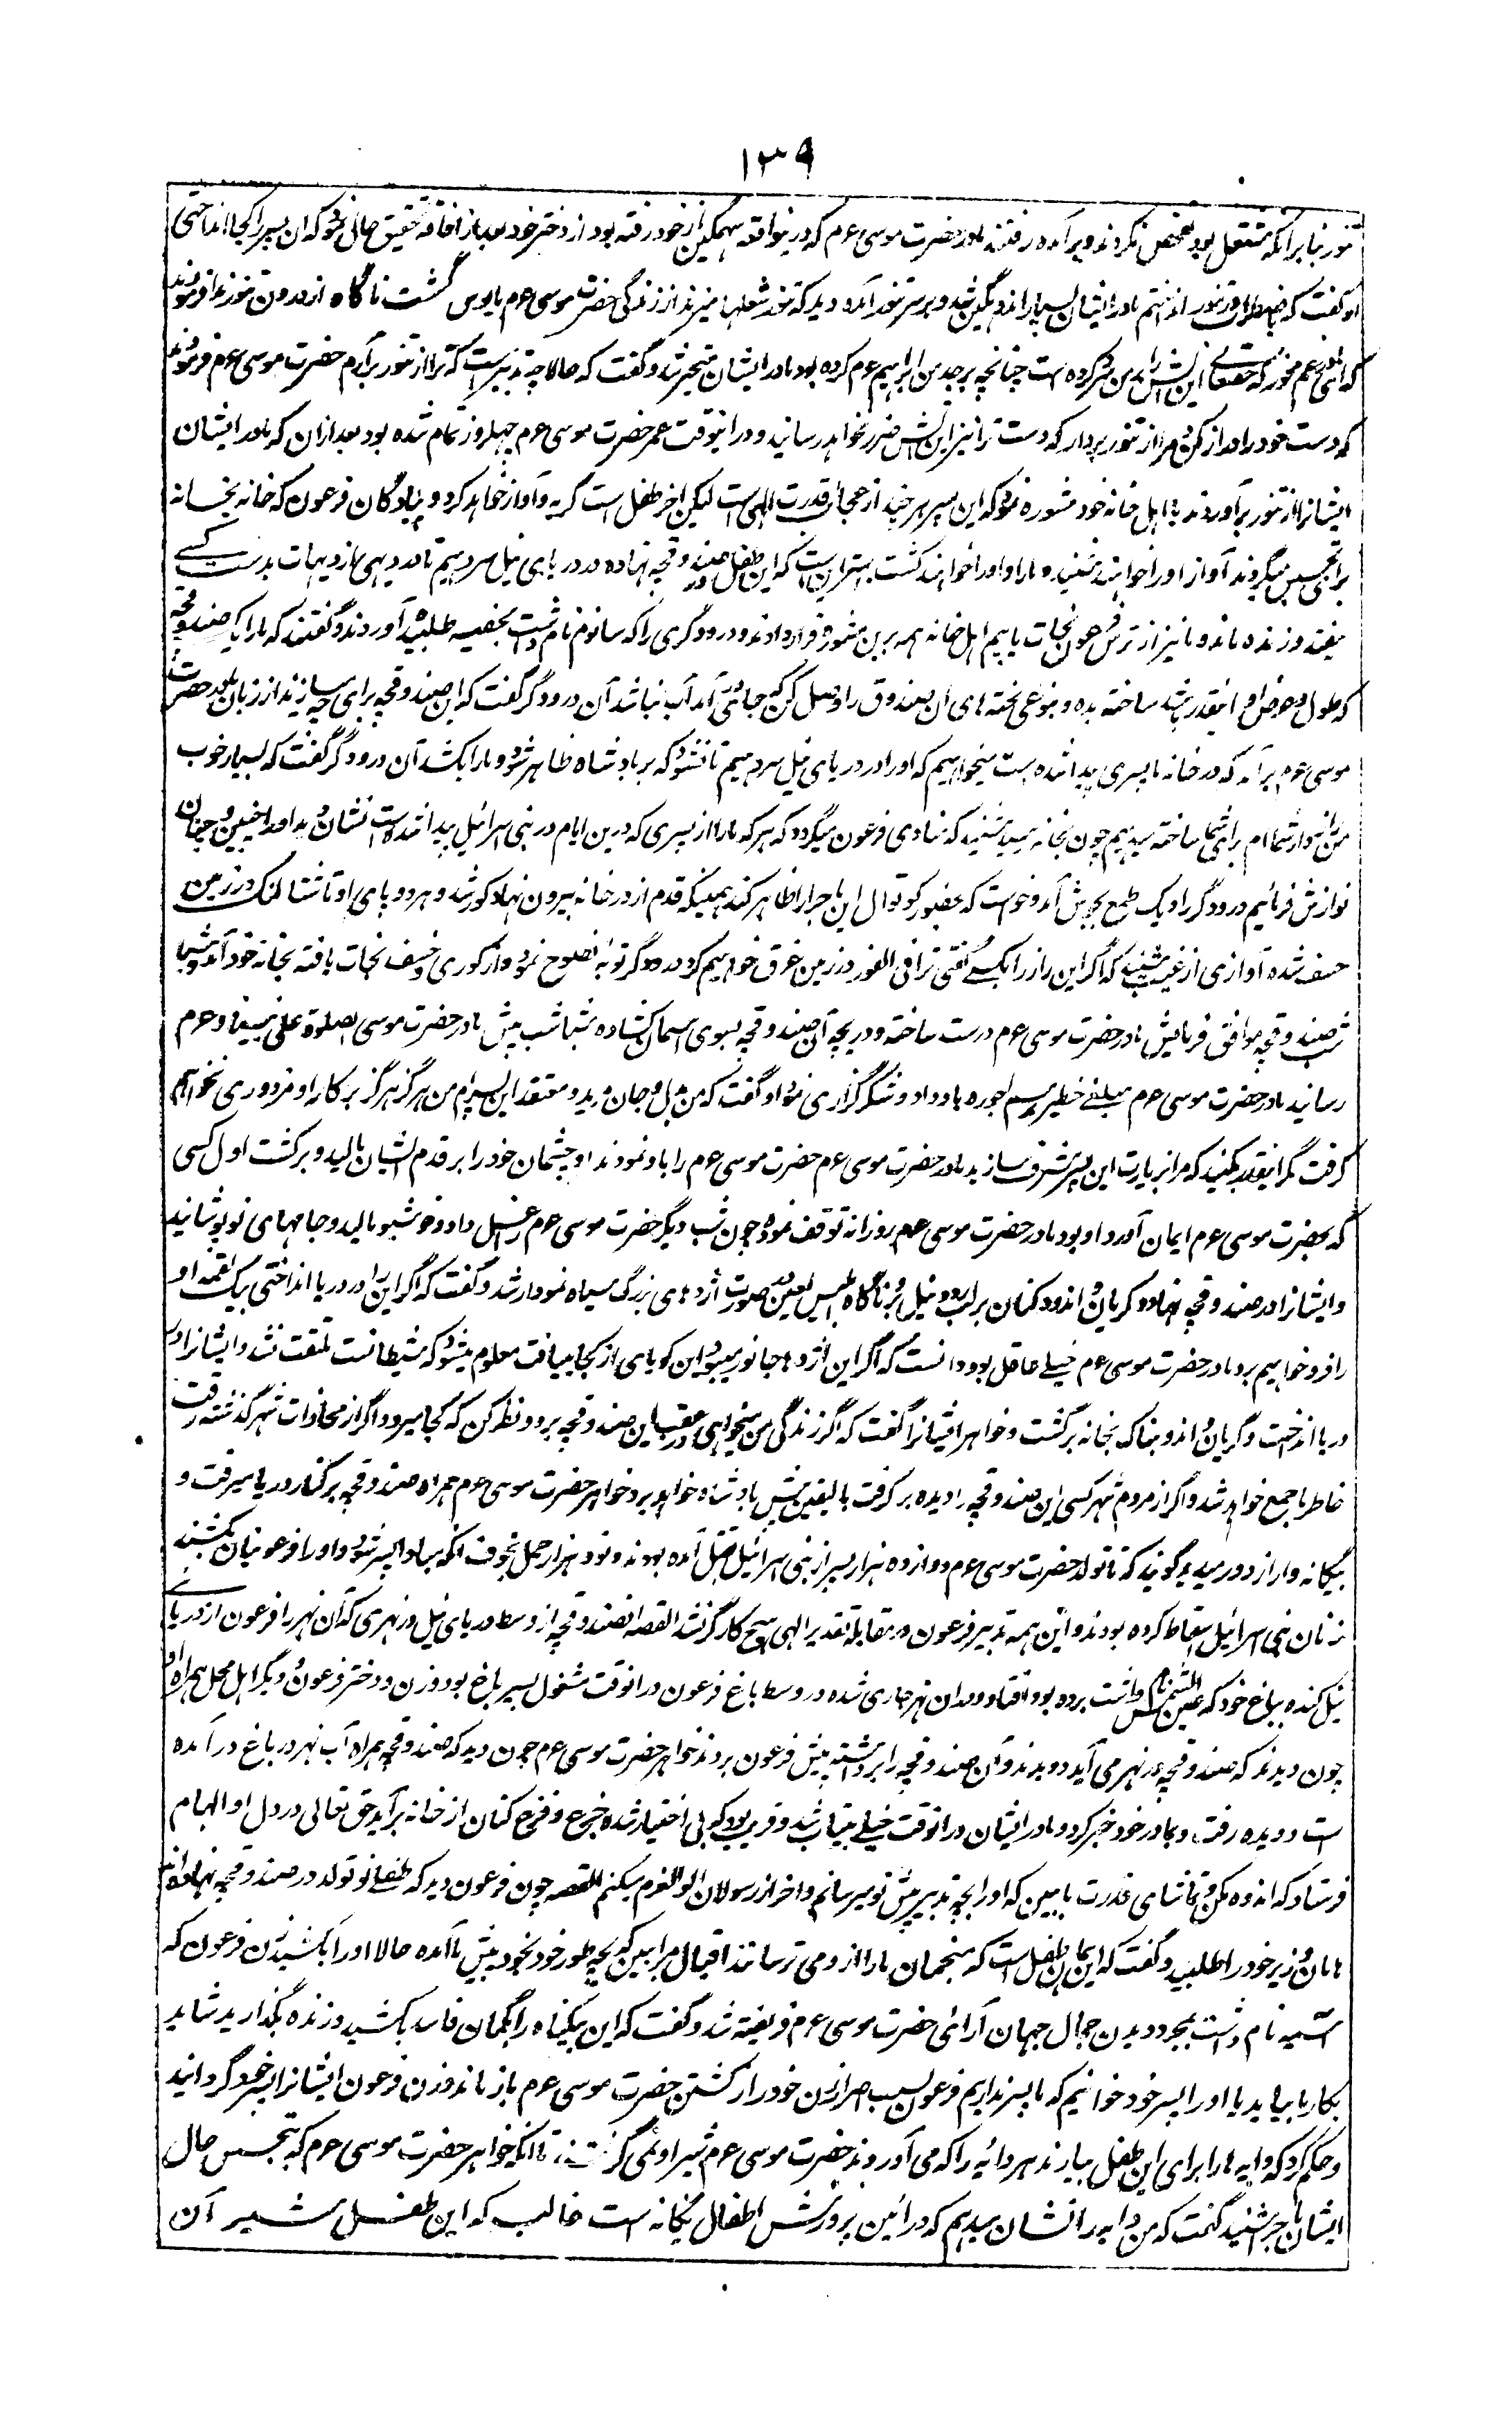 ۱۳۹
تنور بنابر آنکه مشتعل بود تفحص نکردند و برآمده رفتند مادر حضرت موسی عم که درین واقعه سهمگین از خود رفته بود از دختر خود بعد از افاقه تحقیق حال نمود که آن پسر را کجا انداختی
او گفت که باضطراب در تنور انداختم مادر ایشان بسیار اندوهگین شد و بر سر تنور آمد دید که تنور شعلها میزند از زندگی حضرت موسی عم مایوس گشت ناگاه از درون تنور ندا فرمودند
که ای مادر غم مخور که حقتعالی این آتش را بر من سرد کرده است چنانچه بر جد من ابراهیم عم کرده بود مادر ایشان متحیر شد و گفت که حالا چه تدبیر است که ترا از تنور برآرم حضرت موسی عم فرمودند
که دست خود را دراز کن و مرا از تنور بردار که دست ترا نیز این آتش ضرر نخواهد رسانید و درانوقت عمر حضرت موسی عم چهل روز تمام شده بود بعد ازان که مادر ایشان
ایشانرا از تنور برآوردند با اهل خانه خود مشوره نمود که این پسر هر چند از عجائب قدرت الهی است لیکن آخر طفل است گریه و آواز خواهد کرد و پیادگان فرعون که خانه بخانه
برای تجسس میگردند آواز او را خواهند شنید و ما را و او را خواهند کشت بهتر این است که این طفل را در صندوقچه نهاده در دریای نیل سر دهیم تا در دیهی از دیهات بدست کسی
بیفتد و زنده ماند و ما نیز از ترس فرعون نجات یابیم اهل خانه همه برین مشوره قرار دادند و درودگری را که سانوم نام داشت بخفیه طلبیده آوردند و گفتند که ما را یک صندوقچه
که طول و عرض او اینقدر باشد ساخته بده و بنوعی تخته های آن صندوق را وصل کن که جای در آمد آب نباشد آن درودگر گفت که این صندوقچه برای چه میسازند از زبان مادر حضرت
موسی عم برآمد که در خانه ما پسری پیدا شده است میخواهیم که او را در دریای نیل سر دهیم تا نشود که بر بادشاه ظاهر شود و ما را بکشد آن درودگر گفت که بسیار خوب
من از شما ام برای شما ساخته میدهم چون بخانه رسید شنید که منادی فرعون میگردد که هر که ما را از پسری که درین ایام در بنی اسرائیل پیدا شده است نشان دهد او را چنین و چنان
نوازش فرمائیم درودگر را دیگ طمع بجوش آمد و خواست که بحضور کوتوال این ماجرا را ظاهر کند همینکه قدم از در خانه بیرون نهاد کور شد و هر دو پای او تا شتالنگ در زمین
خسف شده آوازی از غیب شنید که اگر این راز را بکسی گفتی ترا فی الفور در زمین غرق خواهیم کرد درودگر توبه نصوح نمود و از کوری و خسف نجات یافته بخانه خود آمد و شبا
شب صندوقچه موافق فرمایش مادر حضرت موسی عم درست ساخته و دریچه آن صندوقچه بسوی آسمان کشاده شباشب پیش مادر حضرت موسی الصلوة علی نبینا و عم
رسانید مادر حضرت موسی عم مبلغی خطیر برسم اجوره باو داد و شکرگزاری نمود او گفت که من بدل و جان مرید و معتقد این پسرم من هرگز هرگز بر کار او مزدوری نخواهم
گرفت مگر اینقدر بکنید که مرا بزیارت این پسر مشرف سازید مادر حضرت موسی عم حضرت موسی عم را باو نمودند او چشمان خود را بر قدم ایشان مالید و برگشت اول کسی
که بحضرت موسی عم ایمان آورد او بود مادر حضرت موسی عم روزانه توقف نموده چون شب دیگر حضرت موسی عم را غسل داد و خوشبو مالید و جامهای نو پوشانید
و ایشانرا در صندوقچه نهاد و گریان و اندوه کنان بر لب رود نیل برد ناگاه ابلیس لعین بصورت اژدهای بزرگ سیاه نمودار شد و گفت که اگر این را در دریا انداختی بیک لقمه او
را فرو خواهم برد مادر حضرت موسی عم خیلی عاقل بود دانست که اگر این اژدها جانور میبود این گویای از کجا مییافت معلوم میشود که شیطانست ملتفت نشد و ایشانرا در
دریا انداخت و گریان و اندوهناک بخانه برگشت و خواهر ایشانرا گفت که اگر زندگی من میخواهی در عقب این صندوقچه برو و نظر کن که کجا میرود اگر از محاذات شهر گذشته رفت
خاطر ما جمع خواهد شد و اگر از مردم شهر کسی این صندوقچه را دیده برگرفت بالیقین پیش بادشاه خواهد برد خواهر حضرت موسی عم همراه صندوقچه بر کنار دریا میرفت و
بیگانه وار از دور میدید گویند که تا تولد حضرت موسی عم دوازده هزار پسر از بنی اسرائیل بقتل آمده بودند و نود هزار حمل بخوف آنکه مبادا پسر شود و او را فرعونیان بکشند
زنان بنی اسرائیل اسقاط کرده بودند و این همه تدبیر فرعون در مقابله تقدیر الهی هیچ کارگر نشد القصه آنصندوقچه از وسط دریای نیل در نهری که آن نهر را فرعون از دریای
نیل کنده بباغ خود که عین الشمس نام داشت برده بود افتاد و بدان نهر جاری شده در وسط باغ فرعون درانوقت مشغول بسیر باغ بود و زن و دختر فرعون و دیگر اهل محل همراه او
چون دیدند که صندوقچه در نهر می آید دویدند و آن صندوقچه را برداشته پیش فرعون بردند خواهر حضرت موسی عم چون دید که صندوقچه همراه آب نهر در باغ در آمده
است دویده رفت و بمادر خود خبر کرد مادر ایشان درانوقت خیلی بیتاب شد و قریب بود که بی اختیار شده جزع و فزع کنان از خانه برآید حق تعالی در دل او الهام
فرستاد که اندوه مکن و تماشای قدرت ما ببین که او را بچه تدبیر پیش تو میرسانم و آخر از رسولان اولوالعزم میکنم القصه چون فرعون دید که طفلی نوتولد در صندوقچه نهاده اند
هامان وزیر خود را طلبید و گفت که این همان طفل است که منجمان ما را ازو می ترسانند اقبال مرا ببین که بچه طور خود بخود پیش ما آمده حالا او را بکشید زن فرعون که
آسیه نام داشت بمجرد دیدن جمال جهان آرائی حضرت موسی عم فریفته شد و گفت که این بیگناه را بگمان فاسد بکشید و زنده بگذارید شاید
بکار ما بیاید یا او را پسر خود خوانیم که ما پسر نداریم فرعون بسبب اصرار زن خود از کشتن حضرت موسی عم باز ماند و زن فرعون ایشانرا پسر خود گردانید
و حکم کرد که دایه ها را برای این طفل بیارند هر دایه را که می آوردند حضرت موسی عم شیر او نمی گرفتند تا آنکه خواهر حضرت موسی عم که بتجسس حال
ایشان ماجرا شنید گفت که من دایه را نشان میدهم که در آئین پرورش اطفال یگانه است غالب که این طفل شیر آن